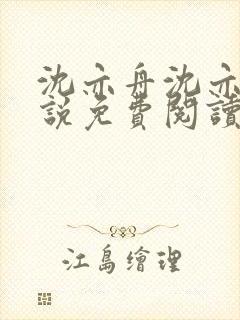 沈亦舟沈亦
說免費閱讀
江島繪理